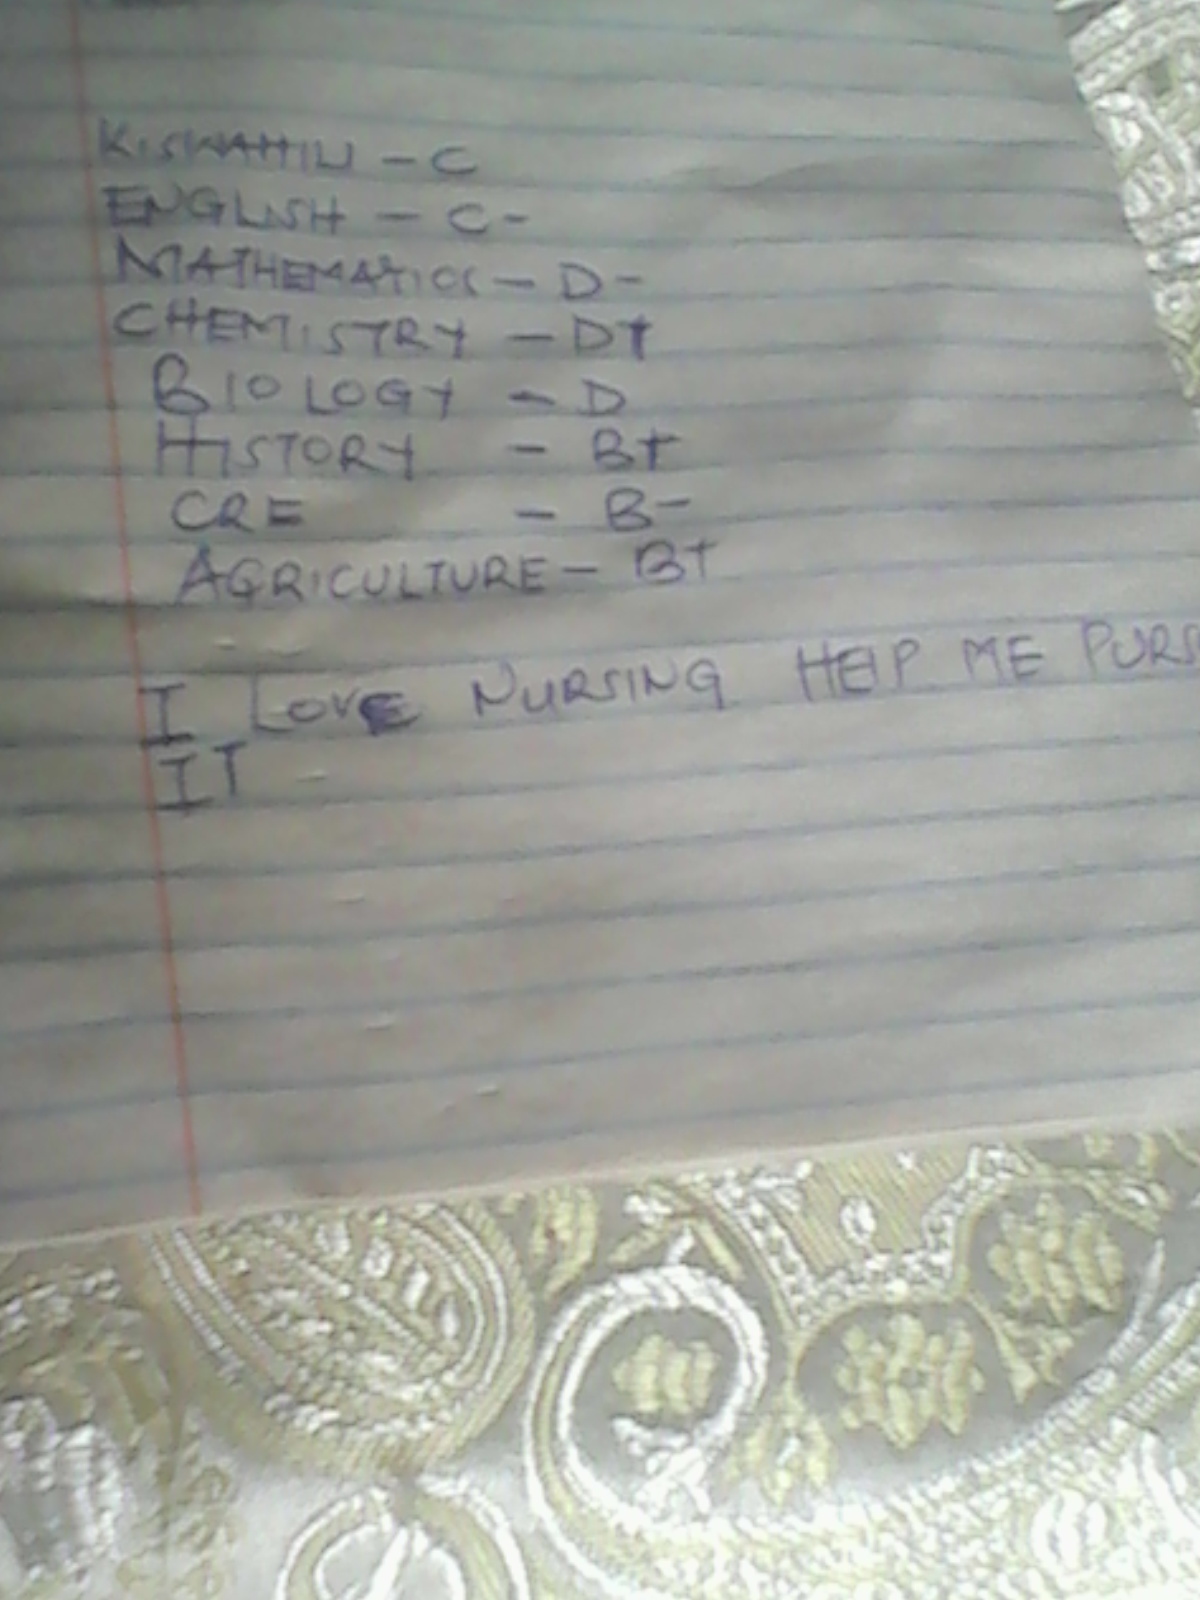 KISWAHILI - C
ENGLISH - C-
MATHEMATICS - D-
CHEMISTRY - D+
BIOLOGY - D
HISTORY - B+
CRE - B-
AGRICULTURE - B+
I LOVE NURSING HELP ME PURS
IT